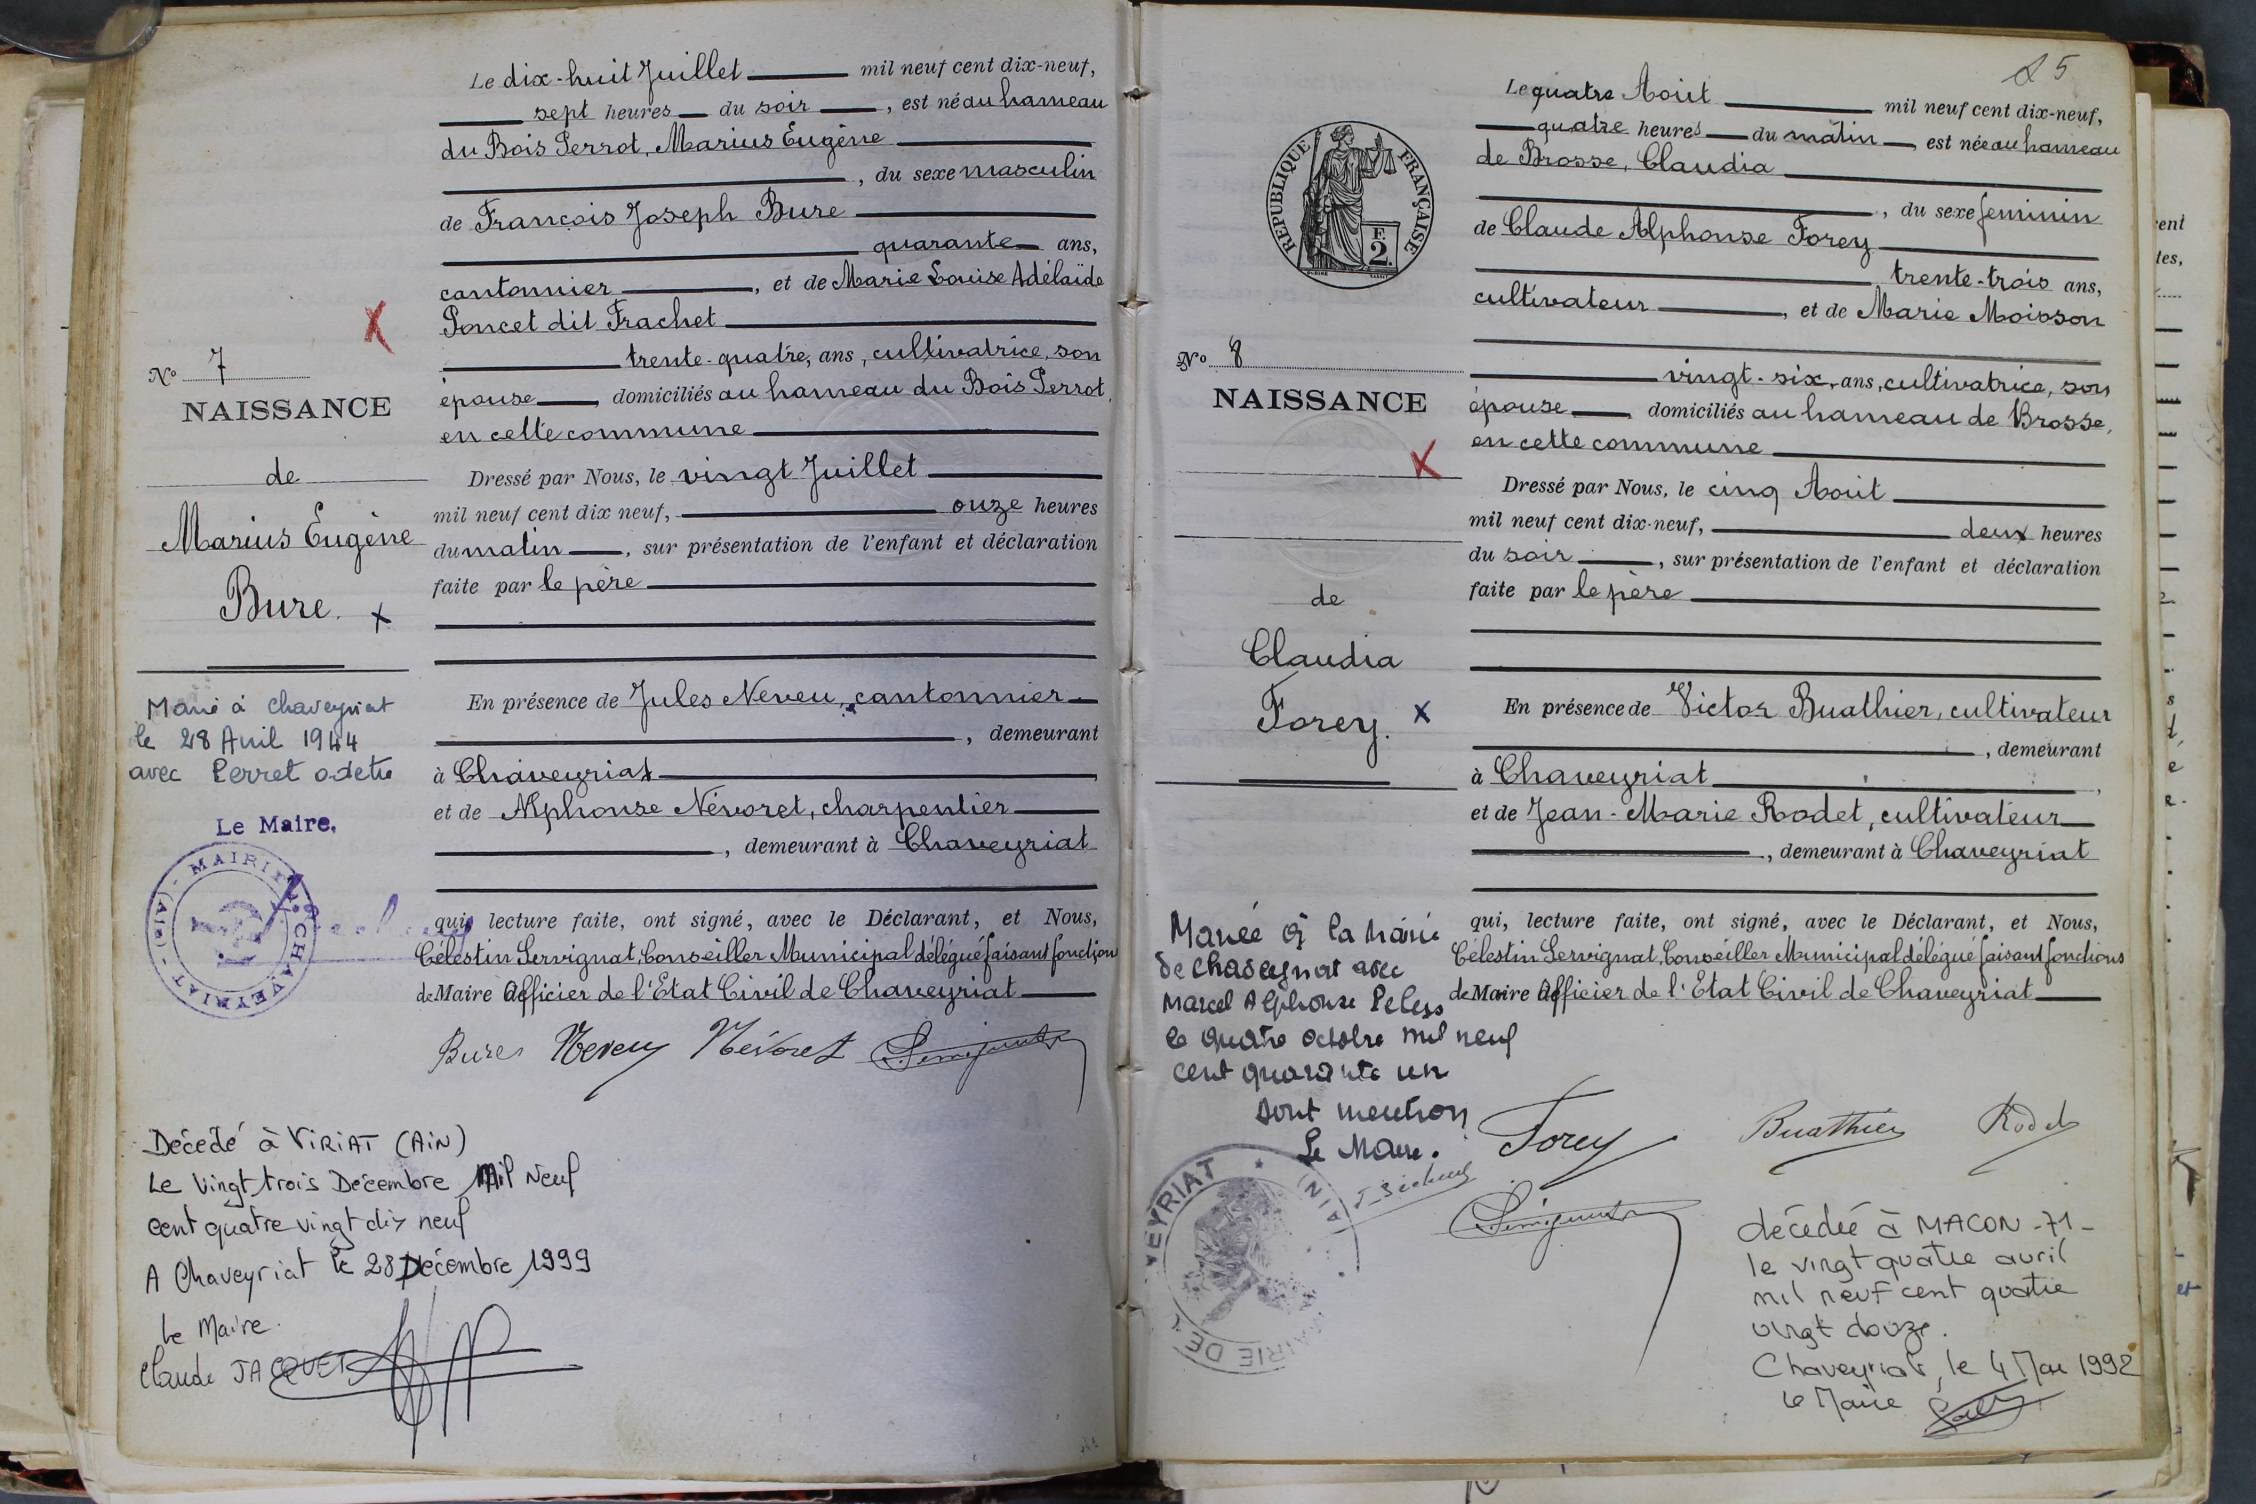 Le dix-huit Juillet mil neuf cent dix-neuf,
sept heures du soir, est né au hameau
du Bois Perrot, Marius Eugène
, du sexe masculin
de François Joseph Bure
quarante ans,
cantonnier, et de Marie Louise Adélaïde
Poncet dit Frachet
trente-quatre, ans, cultivatrice, son
épouse, domiciliés au hameau du Bois Perrot,
en cette commune
Dressé par Nous, le vingt Juillet
mil neuf cent dix neuf, onze heures
du matin, sur présentation de l'enfant et déclaration
faite par le père
En présence de Jules Neveu, cantonnier
, demeurant
à Chaveyriat
et de Alphonse Névoret, charpentier
, demeurant à Chaveyriat
qui, lecture faite, ont signé, avec le Déclarant, et Nous,
Célestin Servignat, Conseiller Municipal délégué faisant fonction
de Maire Officier de l'Etat Civil de Chaveyriat
Bure Neveu Névoret
No 7
NAISSANCE
de
Marius Eugène
Bure.
Marié à Chaveyriat
le 28 Avril 1944
avec Perret Odette
Le Maire,
MAIRIE CHAVEYRIAT (AIN)
Décédé à VIRIAT (AIN)
Le vingt trois Décembre Mil Neuf
cent quatre vingt dix neuf
A Chaveyriat le 28 Décembre 1999
Le Maire.
Claude JACQUET
25
RÉPUBLIQUE FRANÇAISE
F.
2.
Le quatre Août mil neuf cent dix-neuf,
quatre heures du matin, est née au hameau
de Brosse, Claudia
, du sexe feminin
de Claude Alphonse Forey
trente-trois ans,
cultivateur, et de Marie Moisson
vingt-six, ans, cultivatrice, son
épouse, domiciliés au hameau de Brosse,
en cette commune
Dressé par Nous, le cinq Août
mil neuf cent dix-neuf, deux heures
du soir, sur présentation de l'enfant et déclaration
faite par le père
En présence de Victor Buathier, cultivateur
, demeurant
à Chaveyriat,
et de Jean-Marie Rodet, cultivateur
, demeurant à Chaveyriat
qui, lecture faite, ont signé, avec le Déclarant, et Nous,
Célestin Servignat, Conseiller Municipal délégué faisant fonctions
de Maire Officier de l'Etat Civil de Chaveyriat
Forey Buathier Rodet
No 8
NAISSANCE
de
Claudia
Forey.
Mariée à la mairie
de Chaveyriat avec
Marcel Alphonse
le quatre octobre mil neuf
cent quarante un
dont mention
Le Maire.
MAIRIE DE VEYRIAT AIN
décédée à MACON -71-
le vingt quatre avril
mil neuf cent quatre
vingt douze.
Chaveyriat, le 4 Mai 1992
Le Maire